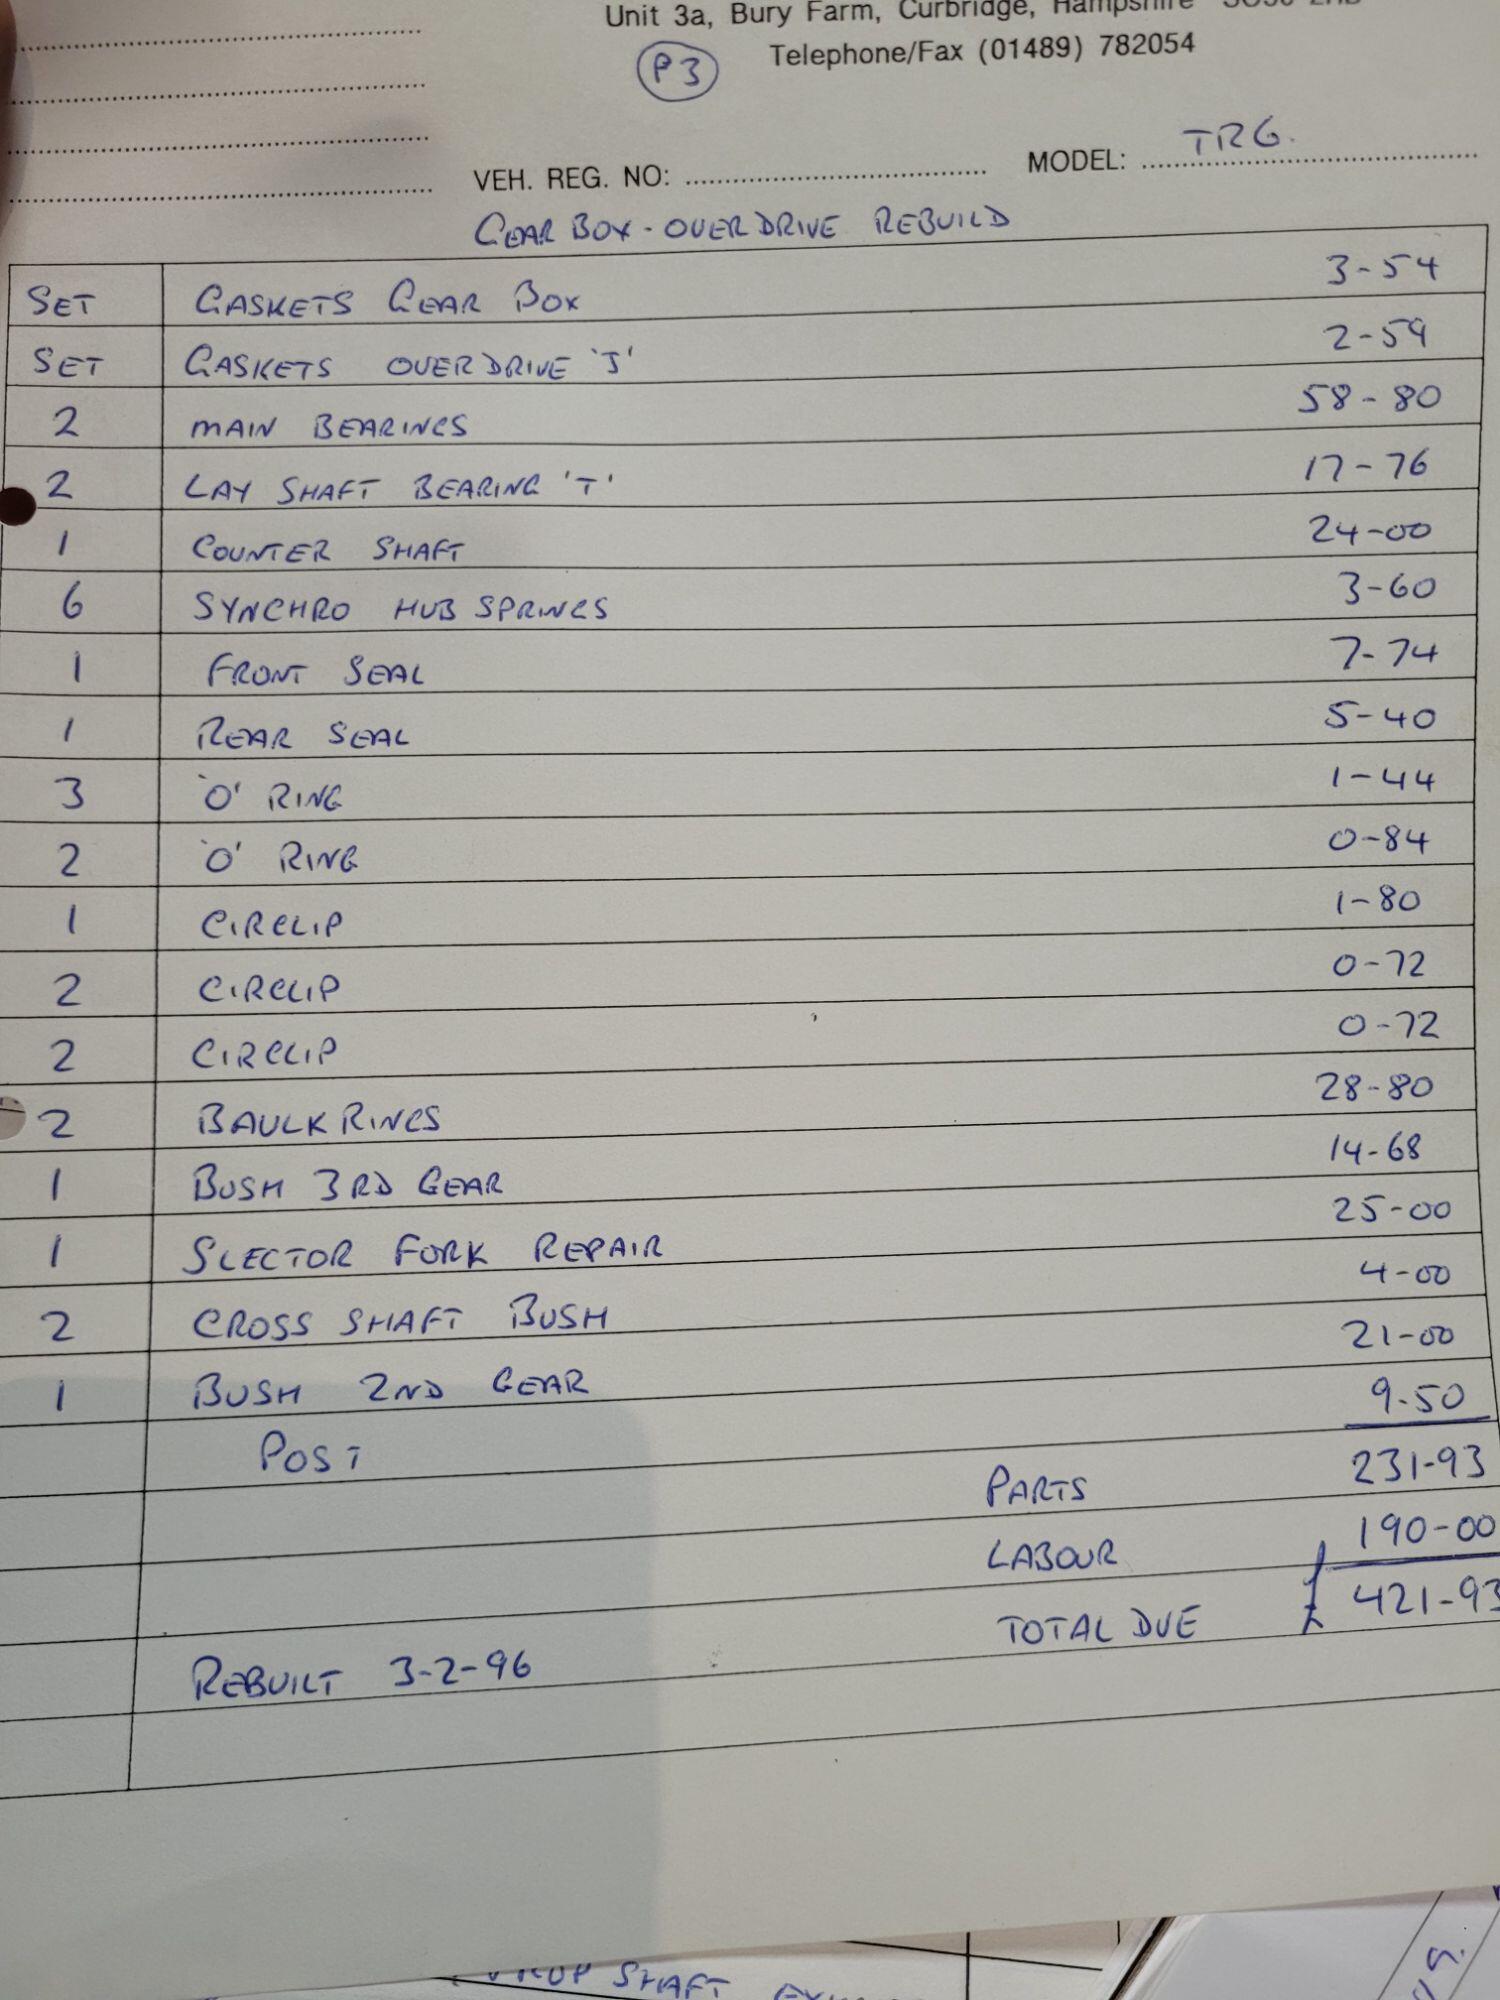 Unit 3a, Bury Farm, Curbridge, Hampshire
P3 Telephone/Fax (01489) 782054
VEH. REG. NO: MODEL: TR6.
GEAR BOX - OVERDRIVE REBUILD
SET GASKETS GEAR BOX 3-54
SET GASKETS OVERDRIVE 'J' 2-59
2 MAIN BEARINGS 58-80
2 LAY SHAFT BEARING 'T' 17-76
1 COUNTER SHAFT 24-00
6 SYNCHRO HUB SPRINGS 3-60
1 FRONT SEAL 7-74
1 REAR SEAL 5-40
3 'O' RING 1-44
2 'O' RING 0-84
1 CIRCLIP 1-80
2 CIRCLIP 0-72
2 CIRCLIP 0-72
2 BAULK RINGS 28-80
1 BUSH 3RD GEAR 14-68
1 SLECTOR FORK REPAIR 25-00
2 CROSS SHAFT BUSH 4-00
1 BUSH 2ND GEAR 21-00
POST 9-50
PARTS 231-93
LABOUR 190-00
TOTAL DUE £ 421-93
REBUILT 3-2-96
SHAFT